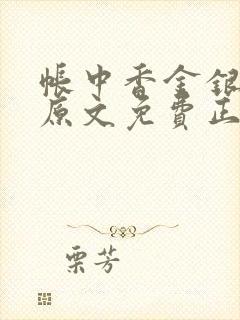 帳中香金銀
原文免費正
栗芳